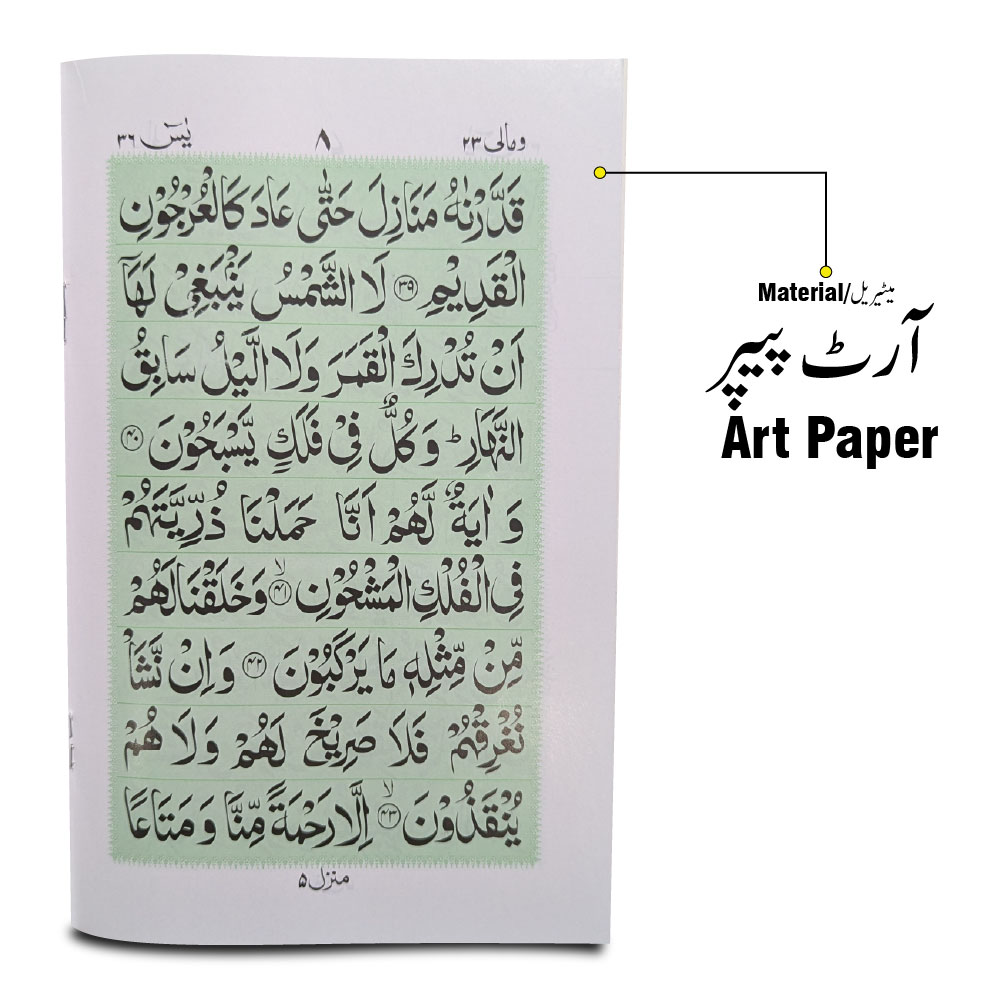 ومالی ۲۳ ۸ یٰسٓ ۳۶
قَدَّرْنٰهُ مَنَازِلَ حَتّٰى عَادَ كَالْعُرْجُوْنِ
الْقَدِيْمِ ﴿۳۹﴾ لَا الشَّمْسُ يَنْۢبَغِيْ لَهَاۤ
اَنْ تُدْرِكَ الْقَمَرَ وَلَا الَّيْلُ سَابِقُ
النَّهَارِ ؕ وَ كُلٌّ فِيْ فَلَكٍ يَّسْبَحُوْنَ ﴿۴۰﴾
وَ اٰيَةٌ لَّهُمْ اَنَّا حَمَلْنَا ذُرِّيَّتَهُمْ
فِي الْفُلْكِ الْمَشْحُوْنِ ﴿۴۱﴾ۙ وَخَلَقْنَا لَهُمْ
مِّنْ مِّثْلِهٖ مَا يَرْكَبُوْنَ ﴿۴۲﴾ وَ اِنْ نَّشَاْ
نُغْرِقْهُمْ فَلَا صَرِيْخَ لَهُمْ وَلَا هُمْ
يُنْقَذُوْنَ ﴿۴۳﴾ۙ اِلَّا رَحْمَةً مِّنَّا وَ مَتَاعًا
منزل ۵
Material/میٹیریل
آرٹ پیپر
Art Paper